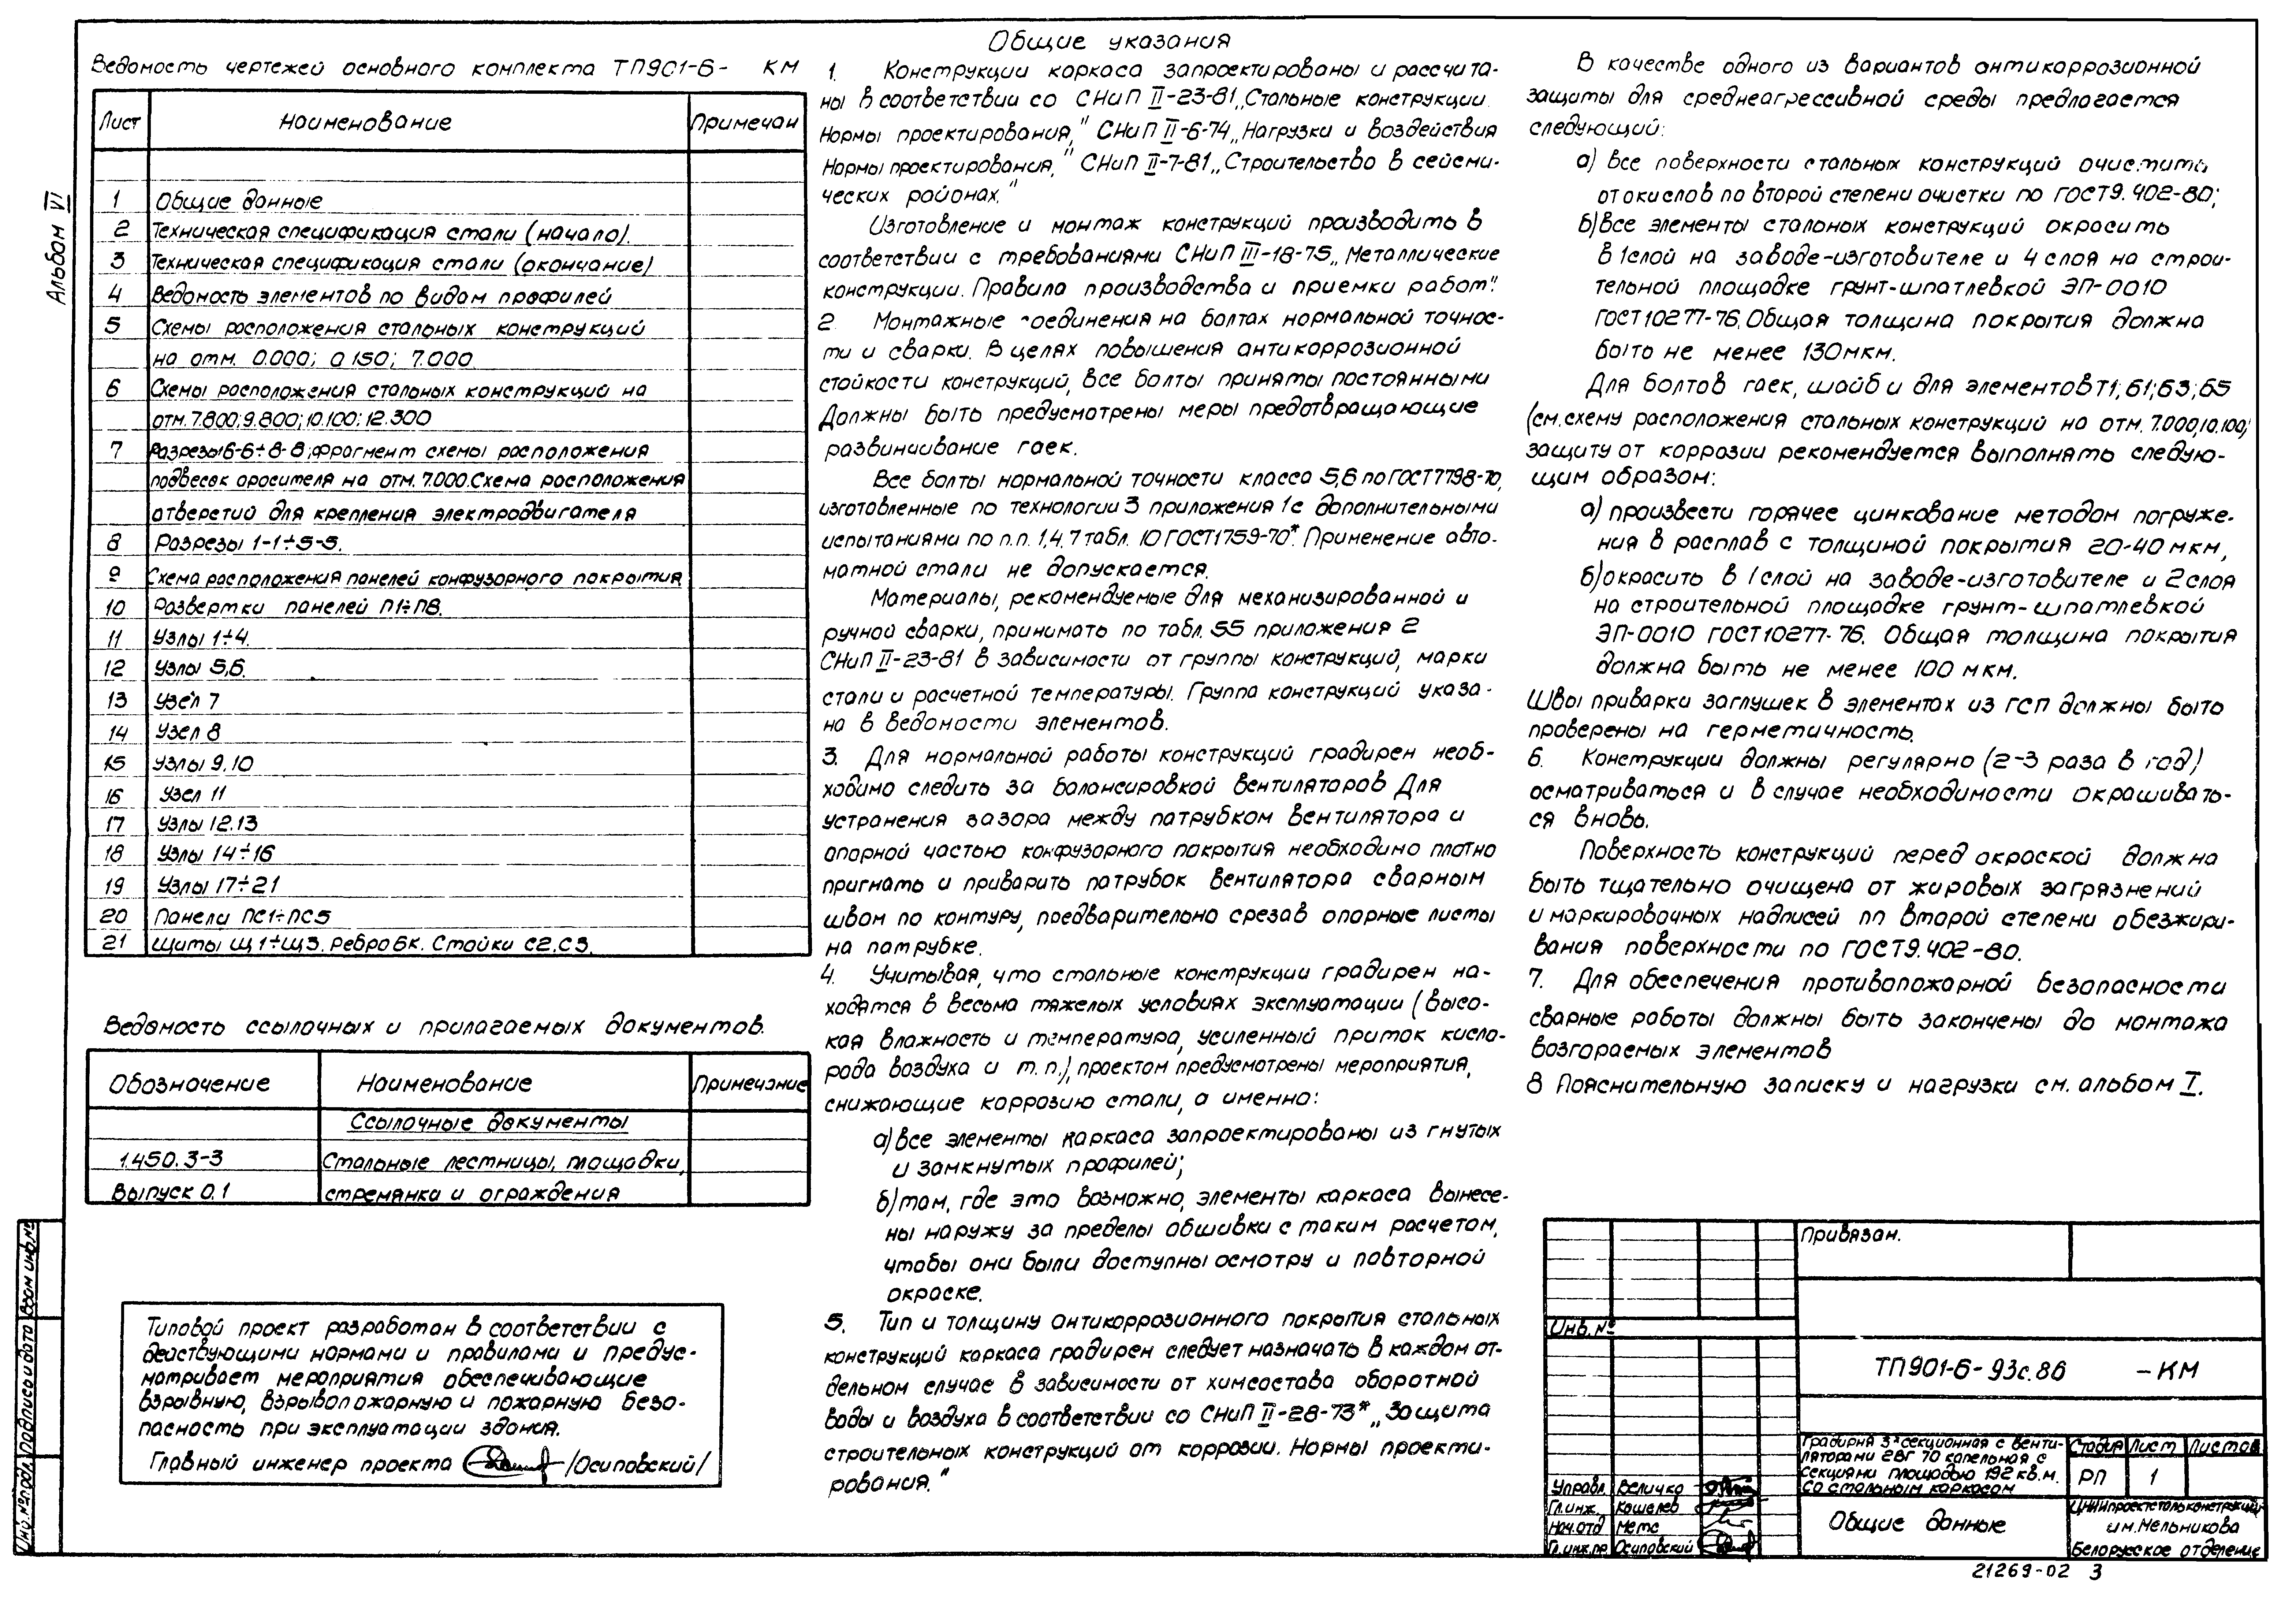 Альбом VI
Ведомость чертежей основного комплекта ТП901-6- КМ
Лист Наименование Примечан
1 Общие данные
2 Техническая спецификация стали (начало).
3 Техническая спецификация стали (окончание)
4 Ведомость элементов по видам профилей
5 Схемы расположения стальных конструкций
на отм. 0.000; 0 150; 7.000
6 Схемы расположения стальных конструкций на
отм. 7.800; 9.800; 10.100; 12.300
7 Разрезы 6-6÷8-8; фрагмент схемы расположения
подвесок оросителя на отм. 7.000. Схема расположения
отверстий для крепления электродвигателя
8 Разрезы 1-1÷5-5.
9 Схема расположения панелей конфузорного покрытия
10 Развертки панелей П1÷П8.
11 Узлы 1÷4.
12 Узлы 5,6.
13 Узел 7
14 Узел 8
15 Узлы 9.10
16 Узел 11
17 Узлы 12.13
18 Узлы 14÷16
19 Узлы 17÷21
20 Панели ПС1÷ПС5
21 Щиты Щ1÷Щ3. Ребро БК. Стойки С2.С3.
Ведомость ссылочных и прилагаемых документов.
Обозначение Наименование Примечание
Ссылочные документы
1.450.3-3 Стальные лестницы, площадки,
Выпуск 0.1 стремянки и ограждения
Типовой проект разработан в соответствии с
действующими нормами и правилами и предус-
матривает мероприятия обеспечивающие
взрывную, взрывопожарную и пожарную безо-
пасность при эксплуатации здания.
Главный инженер проекта /Осиповский/
Общие указания
1. Конструкции каркаса запроектированы и рассчита-
ны в соответствии со СНиП II-23-81 „Стальные конструкции.
Нормы проектирования," СНиП II-6-74 „Нагрузки и воздействия
Нормы проектирования," СНиП II-7-81 „Строительство в сейсми-
ческих районах."
Изготовление и монтаж конструкций производить в
соответствии с требованиями СНиП III-18-75 „Металлические
конструкции. Правила производства и приемки работ".
2. Монтажные соединения на болтах нормальной точнос-
ти и сварки. В целях повышения антикоррозионной
стойкости конструкций, все болты приняты постоянными
Должны быть предусмотрены меры предотвращающие
развинчивание гаек.
Все болты нормальной точности класса 5,6 по ГОСТ 7798-70,
изготовленные по технологии 3 приложения 1 с дополнительными
испытаниями по п.п. 1,4,7 табл. 10 ГОСТ 1759-70*. Применение авто-
матной стали не допускается.
Материалы, рекомендуемые для механизированной и
ручной сварки, принимать по табл. 55 приложения 2
СНиП II-23-81 в зависимости от группы конструкций, марки
стали и расчетной температуры. Группа конструкций указа-
на в ведомости элементов.
3. Для нормальной работы конструкций градирен необ-
ходимо следить за балансировкой вентиляторов Для
устранения зазора между патрубком вентилятора и
опорной частью конфузорного покрытия необходимо плотно
пригнать и приварить патрубок вентилятора сварным
швом по контуру, предварительно срезав опорные листы
на патрубке.
4. Учитывая, что стальные конструкции градирен на-
ходятся в весьма тяжелых условиях эксплуатации (высо-
кая влажность и температура, усиленный приток кисло-
рода воздуха и т.п.), проектом предусмотрены мероприятия,
снижающие коррозию стали, а именно:
а) все элементы каркаса запроектированы из гнутых
и замкнутых профилей;
б) там, где это возможно, элементы каркаса вынесе-
ны наружу за пределы обшивки с таким расчетом,
чтобы они были доступны осмотру и повторной
окраске.
5. Тип и толщину антикоррозионного покрытия стальных
конструкций каркаса градирен следует назначать в каждом от-
дельном случае в зависимости от химсостава оборотной
воды и воздуха в соответствии со СНиП II-28-73* „Защита
строительных конструкций от коррозии. Нормы проекти-
рования."
В качестве одного из вариантов антикоррозионной
защиты для среднеагрессивной среды предлагается
следующий:
а) все поверхности стальных конструкций очистить
от окислов по второй степени очистки по ГОСТ 9.402-80;
б) все элементы стальных конструкций окрасить
в 1 слой на заводе-изготовителе и 4 слоя на строи-
тельной площадке грунт-шпатлевкой ЭП-0010
ГОСТ 10277-76. Общая толщина покрытия должна
быть не менее 130мкм.
Для болтов гаек, шайб и для элементов Т1; 61; 63; 65
(см. схему расположения стальных конструкций на отм. 7.000; 10.100;
защиту от коррозии рекомендуется выполнять следую-
щим образом:
а) произвести горячее цинкование методом погруже-
ния в расплав с толщиной покрытия 20-40 мкм,
б) окрасить в 1 слой на заводе-изготовителе и 2 слоя
на строительной площадке грунт-шпатлевкой
ЭП-0010 ГОСТ 10277-76. Общая толщина покрытия
должна быть не менее 100 мкм.
Швы приварки заглушек в элементах из ГСП должны быть
проверены на герметичность.
6. Конструкции должны регулярно (2-3 раза в год)
осматриваться и в случае необходимости окрашивать-
ся вновь.
Поверхность конструкций перед окраской должна
быть тщательно очищена от жировых загрязнений
и маркировочных надписей по второй степени обезжири-
вания поверхности по ГОСТ 9.402-80.
7. Для обеспечения противопожарной безопасности
сварные работы должны быть закончены до монтажа
возгораемых элементов
8 Пояснительную записку и нагрузки см. альбом I.
Привязан.
Инв. №
ТП901-6-93с.86 -КМ
Градирня 3х секционная с венти-
ляторами 2ВГ 70 капельная с
секциями площадью 192 кв.м.
Со стальным каркасом
Стадия Лист Листов
РП 1
Управл. Величко
Гл.инж. Кошелев
Нач.отд Метс
Гл.инж.пр Осиповский
Общие данные
ЦНИИпроектстальконструкция
им. Мельникова
Белорусское отделение
Инв.№подл. Подпись и дата Взам инв.№
21269-02 3